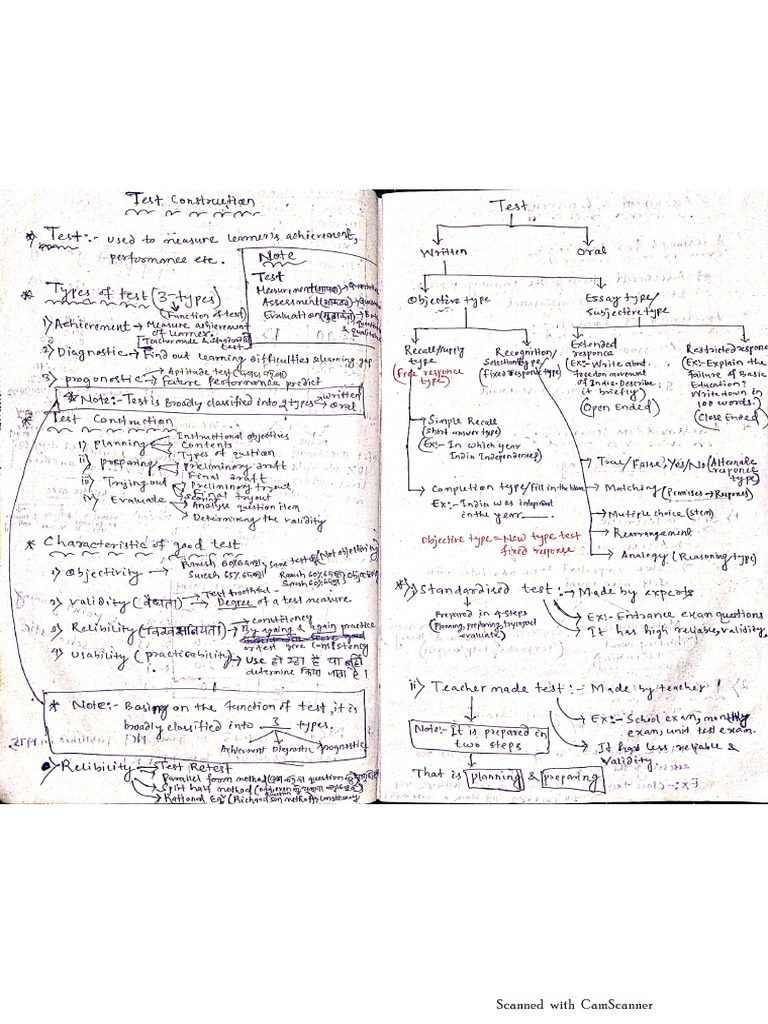 Test Construction
* Test:- used to measure learner's achievement,
performance etc.
Note
Test
Measurement (मापन) →
Assessment (आकलन) →
Evaluation (मूल्यांकन) → Both
& qualitative
* Types of test (3-types)
(Function of test)
1) Achievement → Measure achievement
of learner.
Teacher made & Standardised
test
2) Diagnostic → Find out learning difficulties & learning gap
3) prognostic → Aptitude test
→ Feature performance predict
* Note:- Test is Broadly classified into 2 types → written
→ oral
* Test Construction
i) planning
Instructional objectives
Contents
Types of qustion
ii) preparing
preliminary draft
Final draft
iii) Trying out
preliminary tryout
final tryout
iv) Evaluate
Analyse question item
Determining the validity
* Characteristic of good test
1) Objectivity →
Ramesh 60%
Suresh 65%
same test
(Not objectivity)
Ramesh 60%
Suresh 60%
2) validity (वैधता) → Test truthful -
→ Degree of a test measure
3) Relibility (विश्वसनियता) → consistency
→ By againg & again practice
or test give consistency
4) usability (practicability) → Use हो रहा है या नहीं
determine किया जाता है।
* Note:- Basing on the function of test, it is
broadly classified into 3 types.
Achievment Diagnostic prognostic
Relibicity → Test Retest
→ Parallel form method
→ Split half method
→ Rational Eq (Richardson method) → Consistency
Test
Written
Oral
Objective type
Essay type/
Subjective type
Recall/supply
type
(Free response
type)
Recognition/
Selection type/
(Fixed response type)
Extended
responce
(Ex:- Write about
freedom movement
of India. Describe
it briefly)
(Open Ended)
Restricted responce
(Ex:- Explain the
failure of Basic
Education?
Write down in
100 words.)
(Close Ended)
Simple Recall
(Short answer type)
(Ex:- In which year
India Independence)
Completion type/Fill in the blank
Ex:- India was independent
in the year ____.
Objective type = New type test
fixed response
True/False, Yes/No (Alternate
response
type)
Matching (Premises → Response)
Multiple choice (stem)
Rearrangement
Analogy (Reasoning type)
* i) Standardised test :→ Made by experts
Prepared in 4 steps
(Planning, preparing, trying out
evaluate)
→ Ex:- Entrance exam questions
→ It has high reliable, validity.
ii) Teacher made test :- Made by teacher
Note:- It is prepared in
two steps
→ Ex:- School exam, monthly
exam, unit test exam.
→ It has less reliable &
validity.
That is planning & preparing
Scanned with CamScanner